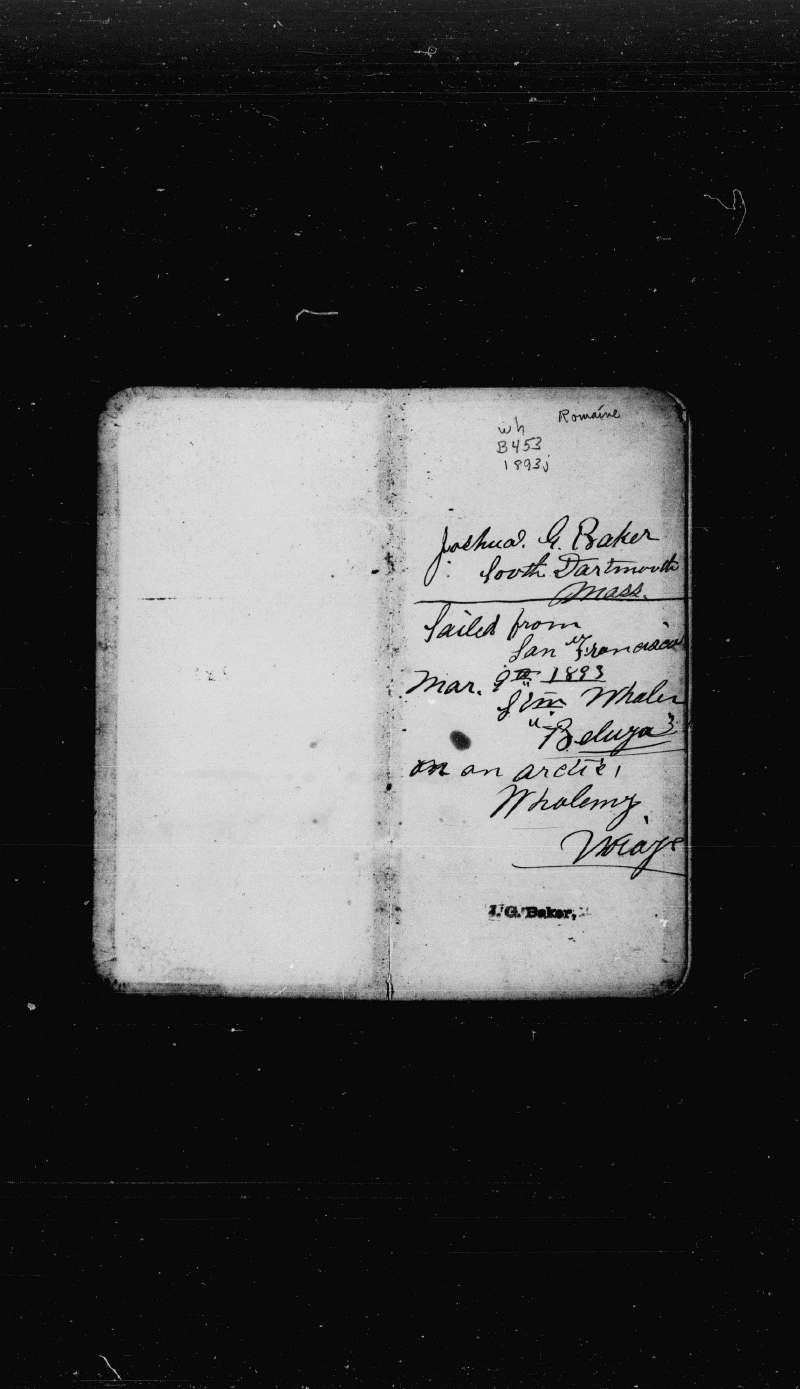 Romaine
wh
B453
1893j
Joshua. G. Baker
South Dartmouth
Mass.
Sailed from
San Francisco
Mar. 9th 1893
Stm Whaler
"Beluga"
on an arctic,
Whaleing
Voiage
J. G. Baker,